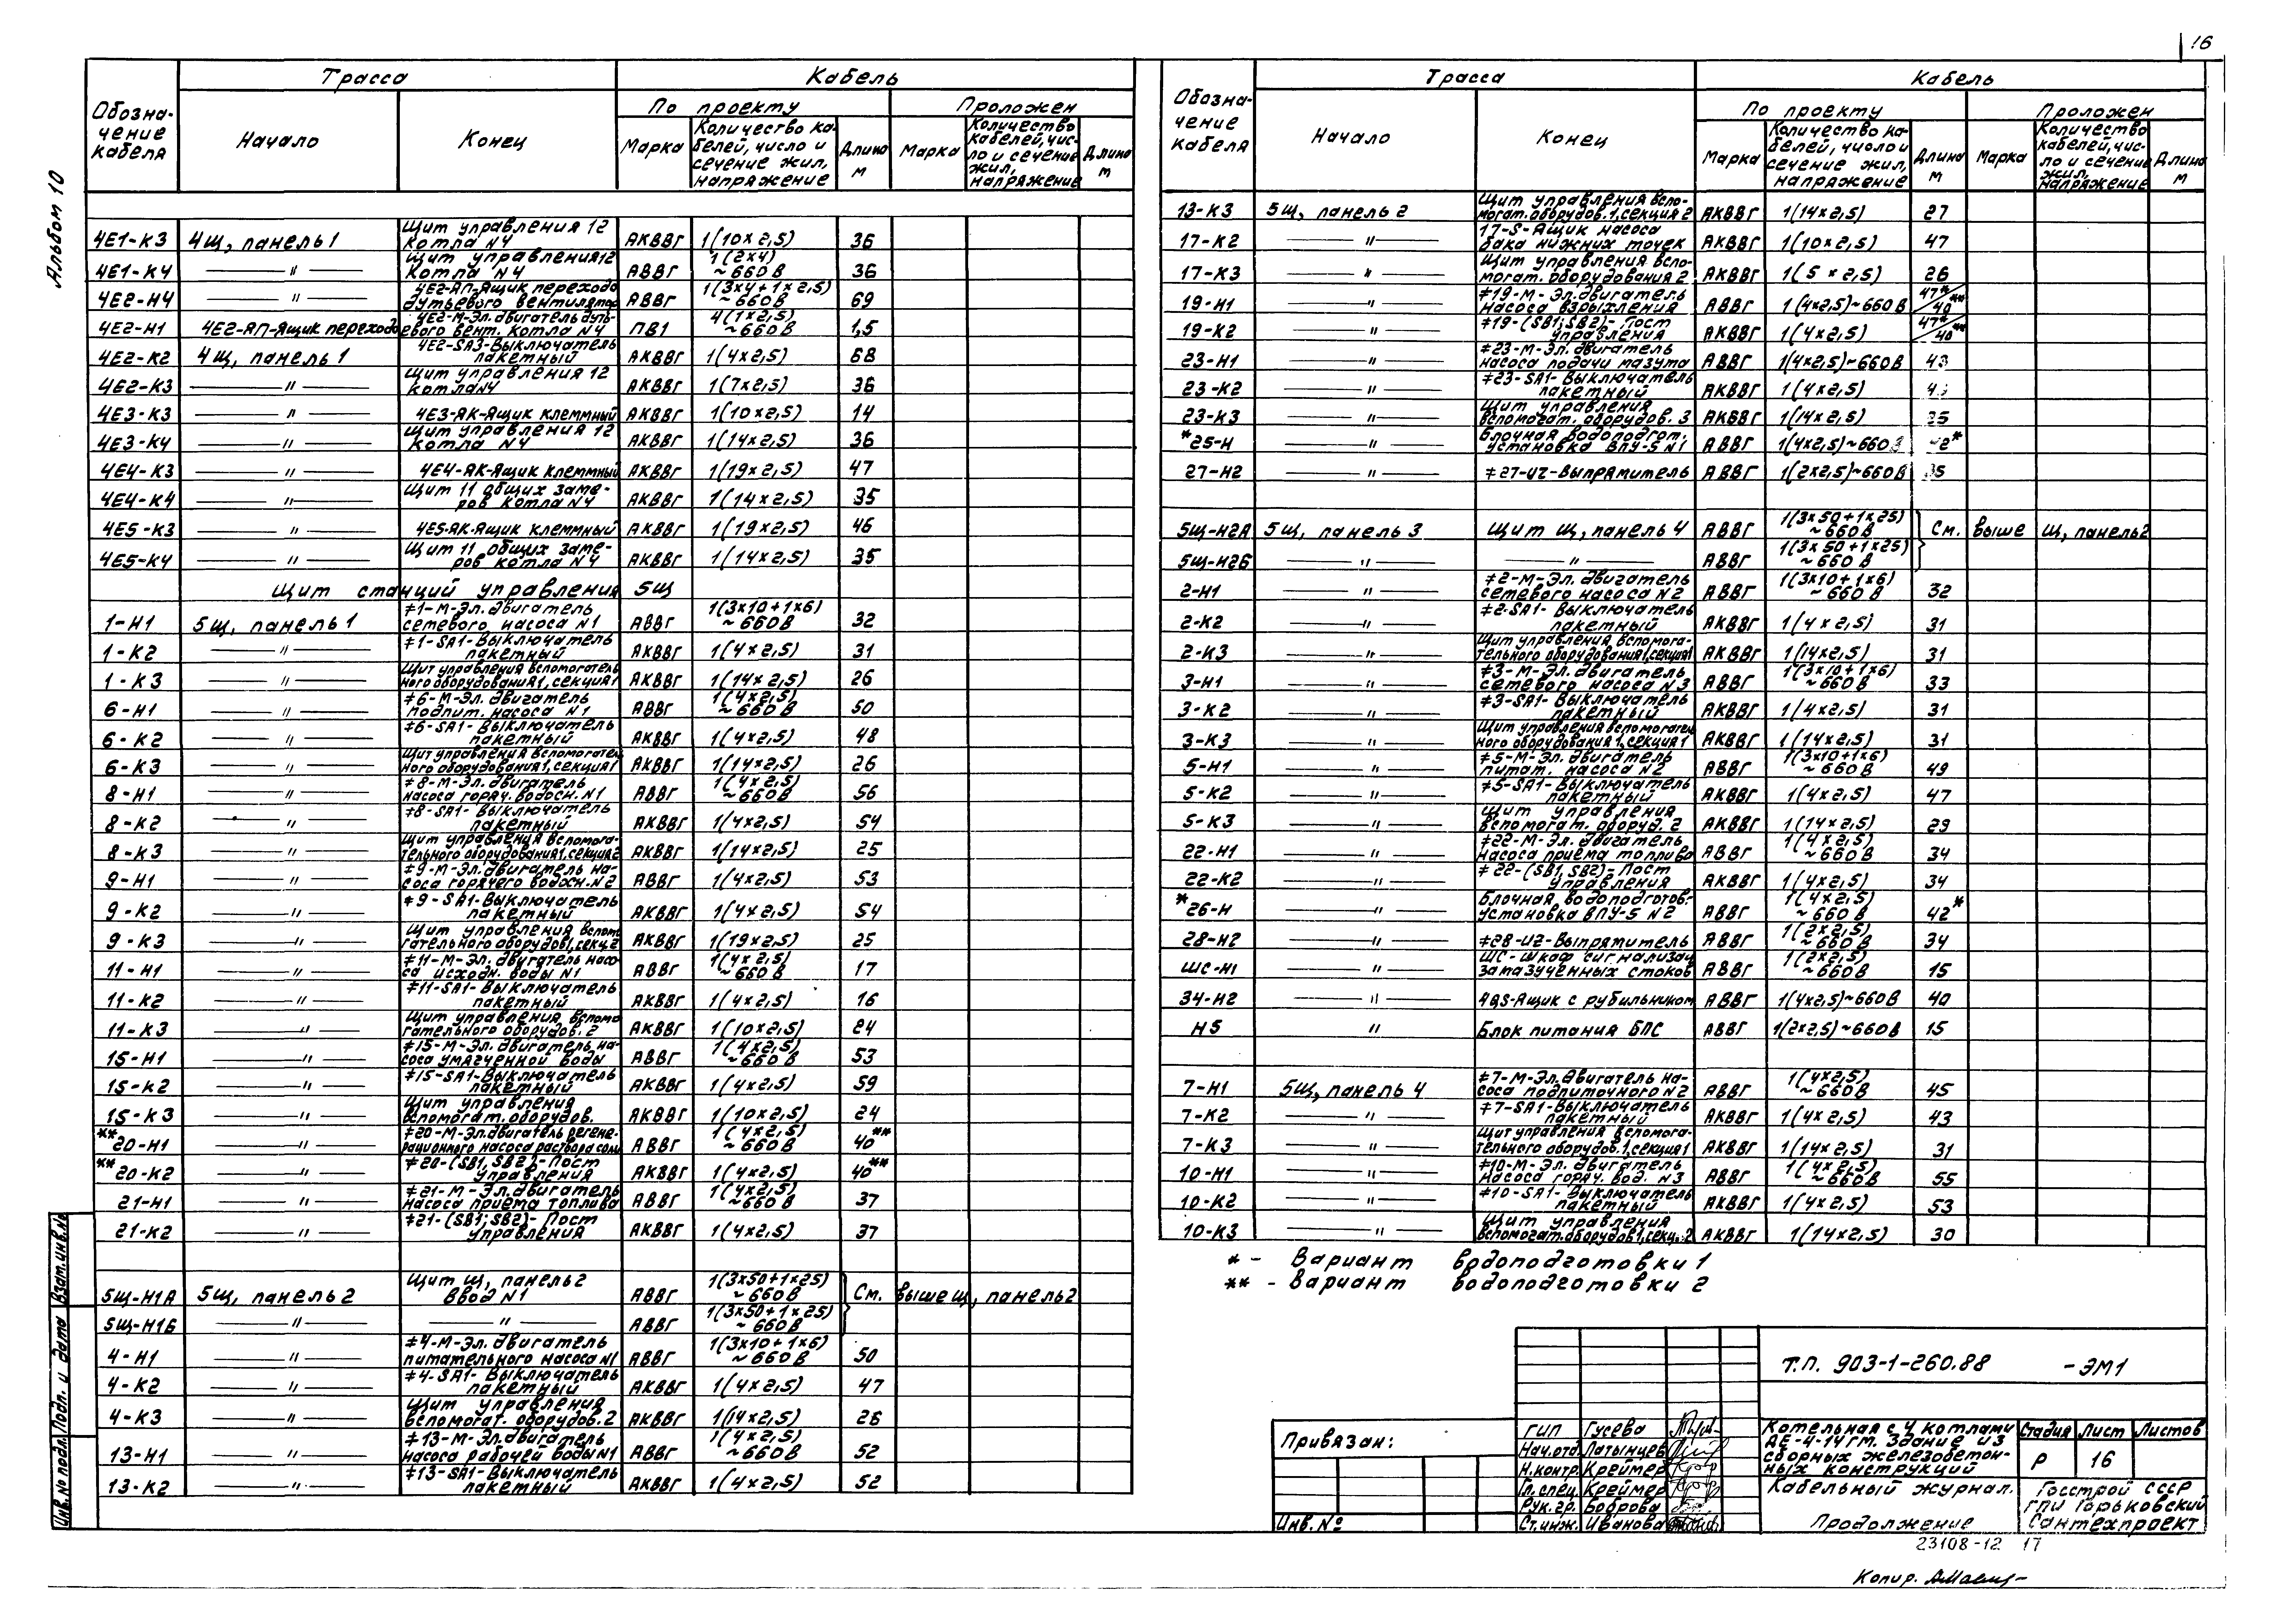 16
Альбом 10
Обозначение кабеля | Трасса | Кабель
Начало | Конец | По проекту | Проложен
Марка | Количество кабелей, число и сечение жил, напряжение | Длина м | Марка | Количество кабелей, число и сечение жил, напряжение | Длина м
4Е1-К3 4щ, панель 1 Щит управления 12 котла N4 АКВВГ 1(10×2,5) 36
4Е1-К4 —"— Щит управления 12 котла N4 АВВГ 1(2×4) ~660В 36
4Е2-Н4 —"— 4Е2-ЯП-Ящик перехода дутьевого вентилятор АВВГ 1(3×4+1×2,5) ~660В 69
4Е2-Н1 4Е2-ЯП-Ящик перехода 4Е2-М-Эл. двигатель дутьевого вент. котла N4 ПВ1 4(1×2,5) ~660В 1,5
4Е2-К2 4щ, панель 1 4Е2-SA3-Выключатель пакетный АКВВГ 1(4×2,5) 68
4Е2-К3 —"— Щит управления 12 котла N4 АКВВГ 1(7×2,5) 36
4Е3-К3 —"— 4Е3-ЯК-Ящик клеммный АКВВГ 1(10×2,5) 14
4Е3-К4 —"— Щит управления 12 котла N4 АКВВГ 1(14×2,5) 36
4Е4-К3 —"— 4Е4-ЯК-Ящик клеммный АКВВГ 1(19×2,5) 47
4Е4-К4 —"— Щит 11 общих замеров котла N4 АКВВГ 1(14×2,5) 35
4Е5-К3 —"— 4Е5-ЯК-Ящик клеммный АКВВГ 1(19×2,5) 46
4Е5-К4 —"— Щит 11 общих замеров котла N4 АКВВГ 1(14×2,5) 35
Щит станций управления 5щ
1-Н1 5щ, панель 1 ≠1-М-Эл. двигатель сетевого насоса N1 АВВГ 1(3×10+1×6) ~660В 32
1-К2 —"— ≠1-SA1-Выключатель пакетный АКВВГ 1(4×2,5) 31
1-К3 —"— Щит управления вспомогательного оборудования 1, секция 1 АКВВГ 1(14×2,5) 26
6-Н1 —"— ≠6-М-Эл. двигатель подпит. насоса N1 АВВГ 1(4×2,5) ~660В 50
6-К2 —"— ≠6-SA1-Выключатель пакетный АКВВГ 1(4×2,5) 48
6-К3 —"— Щит управления вспомогательного оборудования 1, секция 1 АКВВГ 1(14×2,5) 26
8-Н1 —"— ≠8-М-Эл. двигатель насоса горяч. водосн. N1 АВВГ 1(4×2,5) ~660В 56
8-К2 —"— ≠8-SA1-Выключатель пакетный АКВВГ 1(4×2,5) 54
8-К3 —"— Щит управления вспомогательного оборудования 1, секция 2 АКВВГ 1(14×2,5) 25
9-Н1 —"— ≠9-М-Эл. двигатель насоса горячего водосн. N2 АВВГ 1(4×2,5) 53
9-К2 —"— ≠9-SA1-Выключатель пакетный АКВВГ 1(4×2,5) 54
9-К3 —"— Щит управления вспомогательного оборудов 1, секц. 2 АКВВГ 1(19×2,5) 25
11-Н1 —"— ≠11-М-Эл. двигатель насоса исходн. воды N1 АВВГ 1(4×2,5) ~660В 17
11-К2 —"— ≠11-SA1-Выключатель пакетный АКВВГ 1(4×2,5) 16
11-К3 —"— Щит управления вспомогательного оборудов. 2 АКВВГ 1(10×2,5) 24
15-Н1 —"— ≠15-М-Эл. двигатель насоса умягченной воды АВВГ 1(4×2,5) ~660В 53
15-К2 —"— ≠15-SA1-Выключатель пакетный АКВВГ 1(4×2,5) 59
15-К3 —"— Щит управления вспомогат. оборудов. АКВВГ 1(10×2,5) 24
**20-Н1 —"— ≠20-М-Эл. двигатель регенерационного насоса раствора соли АВВГ 1(4×2,5) ~660В 40**
**20-К2 —"— ≠20-(SB1, SB2)-Пост управления АКВВГ 1(4×2,5) 40**
21-Н1 —"— ≠21-М-Эл. двигатель насоса приема топлива АВВГ 1(4×2,5) ~660В 37
21-К2 —"— ≠21-(SB1; SB2)-Пост управления АКВВГ 1(4×2,5) 37
5щ-Н1А 5щ, панель 2 Щит щ, панель 2 ввод N1 АВВГ 1(3×50+1×25) ~660В См. выше щ, панель 2
5щ-Н1Б —"— —"— АВВГ 1(3×50+1×25) ~660В
4-Н1 —"— ≠4-М-Эл. двигатель питательного насоса N1 АВВГ 1(3×10+1×6) ~660В 50
4-К2 —"— ≠4-SA1-Выключатель пакетный АКВВГ 1(4×2,5) 47
4-К3 —"— Щит управления вспомогат. оборудов. 2 АКВВГ 1(14×2,5) 26
13-Н1 —"— ≠13-М-Эл. двигатель насоса рабочей воды N1 АВВГ 1(4×2,5) ~660В 52
13-К2 —"— ≠13-SA1-Выключатель пакетный АКВВГ 1(4×2,5) 52
Обозначение кабеля | Трасса | Кабель
Начало | Конец | По проекту | Проложен
Марка | Количество кабелей, число и сечение жил, напряжение | Длина м | Марка | Количество кабелей, число и сечение жил, напряжение | Длина м
13-К3 5щ, панель 2 Щит управления вспомогат. оборудов. 1, секция 2 АКВВГ 1(14×2,5) 27
17-К2 —"— 17-S-Ящик насоса бака нижних точек АКВВГ 1(10×2,5) 47
17-К3 —"— Щит управления вспомогат. оборудования 2 АКВВГ 1(5×2,5) 26
19-Н1 —"— ≠19-М-Эл. двигатель насоса взрыхления АВВГ 1(4×2,5)~660В 47*/40**
19-К2 —"— ≠19-(SB1; SB2)-Пост управления АКВВГ 1(4×2,5) 47*/40**
23-Н1 —"— ≠23-М-Эл. двигатель насоса подачи мазута АВВГ 1(4×2,5)~660В
23-К2 —"— ≠23-SA1-Выключатель пакетный АКВВГ 1(4×2,5)
23-К3 —"— Щит управления вспомогат. оборудов. 3 АКВВГ 1(14×2,5) 35
*25-Н —"— Блочная водоподгот. установка ВПУ-5 N1 АВВГ 1(4×2,5)~660В
27-Н2 —"— ≠27-UZ-Выпрямитель АВВГ 1(2×2,5)~660В 35
5щ-Н2А 5щ, панель 3 Щит щ, панель 4 АВВГ 1(3×50+1×25) ~660В См. выше щ, панель 2
5щ-Н2Б —"— —"— АВВГ 1(3×50+1×25) ~660В
2-Н1 —"— ≠2-М-Эл. двигатель сетевого насоса N2 АВВГ 1(3×10+1×6) ~660В 32
2-К2 —"— ≠2-SA1-Выключатель пакетный АКВВГ 1(4×2,5) 31
2-К3 —"— Щит управления вспомогательного оборудования 1, секция 1 АКВВГ 1(14×2,5) 31
3-Н1 —"— ≠3-М-Эл. двигатель сетевого насоса N3 АВВГ 1(3×10+1×6) ~660В 33
3-К2 —"— ≠3-SA1-Выключатель пакетный АКВВГ 1(4×2,5) 31
3-К3 —"— Щит управления вспомогательного оборудования 1, секция 1 АКВВГ 1(14×2,5) 31
5-Н1 —"— ≠5-М-Эл. двигатель питат. насоса N2 АВВГ 1(3×10+1×6) ~660В 49
5-К2 —"— ≠5-SA1-Выключатель пакетный АКВВГ 1(4×2,5) 47
5-К3 —"— Щит управления вспомогат. оборуд. 2 АКВВГ 1(14×2,5) 29
22-Н1 —"— ≠22-М-Эл. двигатель насоса приема топлива АВВГ 1(4×2,5) ~660В 34
22-К2 —"— ≠22-(SB1, SB2)-Пост управления АКВВГ 1(4×2,5) 34
*26-Н —"— Блочная водоподготов. установка ВПУ-5 N2 АВВГ 1(4×2,5) ~660В 42*
28-Н2 —"— ≠28-UZ-Выпрямитель АВВГ 1(2×2,5) ~660В 34
ШС-Н1 —"— ШС-шкаф сигнализац замазученных стоков АВВГ 1(2×2,5) ~660В 15
34-Н2 —"— 4QS-Ящик с рубильником АВВГ 1(4×2,5)~660В 40
Н5 " Блок питания БПС АВВГ 1(2×2,5)~660В 15
7-Н1 5щ, панель 4 ≠7-М-Эл. двигатель насоса подпиточного N2 АВВГ 1(4×2,5) ~660В 45
7-К2 —"— ≠7-SA1-Выключатель пакетный АКВВГ 1(4×2,5) 43
7-К3 —"— Щит управления вспомогательного оборудов. 1, секция 1 АКВВГ 1(14×2,5) 31
10-Н1 —"— ≠10-М-Эл. двигатель насоса горяч. вод. N3 АВВГ 1(4×2,5) ~660В 55
10-К2 —"— ≠10-SA1-Выключатель пакетный АКВВГ 1(4×2,5) 53
10-К3 —"— Щит управления вспомогат. оборудов 1, секц. 2 АКВВГ 1(14×2,5) 30
* - Вариант водоподготовки 1
** - Вариант водоподготовки 2
Т.П. 903-1-260.88 -ЭМ1
Привязан:
Инв. №
ГИП Гусева
Нач.отд Латынцев
Н.контр. Креймер
Гл. спец. Креймер
Рук. гр. Боброва
Ст. инж. Иванова
Котельная с 4 котлами ДЕ-4-14гм. Здание из сборных железобетонных конструкций
Стадия Лист Листов
Р 16
Кабельный журнал.
Продолжение
Госстрой СССР
ГПИ Горьковский
Сантехпроект
23108-12 17
Копир.
Инв. № подл. Подп. и дата Взам. инв. №